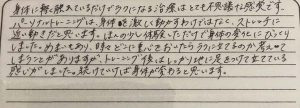 身体に軽く触れているだけでラクになる治療はとても不思議な感覚です。
パーソナルトレーニングは、身体を激しく動かすわけではなく、ストレッチに
近い動きだと思います。ほんの少し体験しただけで身体の変化にびっくり
しました。めまいもあり、時々どこに重心をおいたらラクに立てるのか考えて
しまうことがありますが、トレーニング後はしっかり地に足をつけて立てている
感じがしました。続けていけば身体が変わると思います。